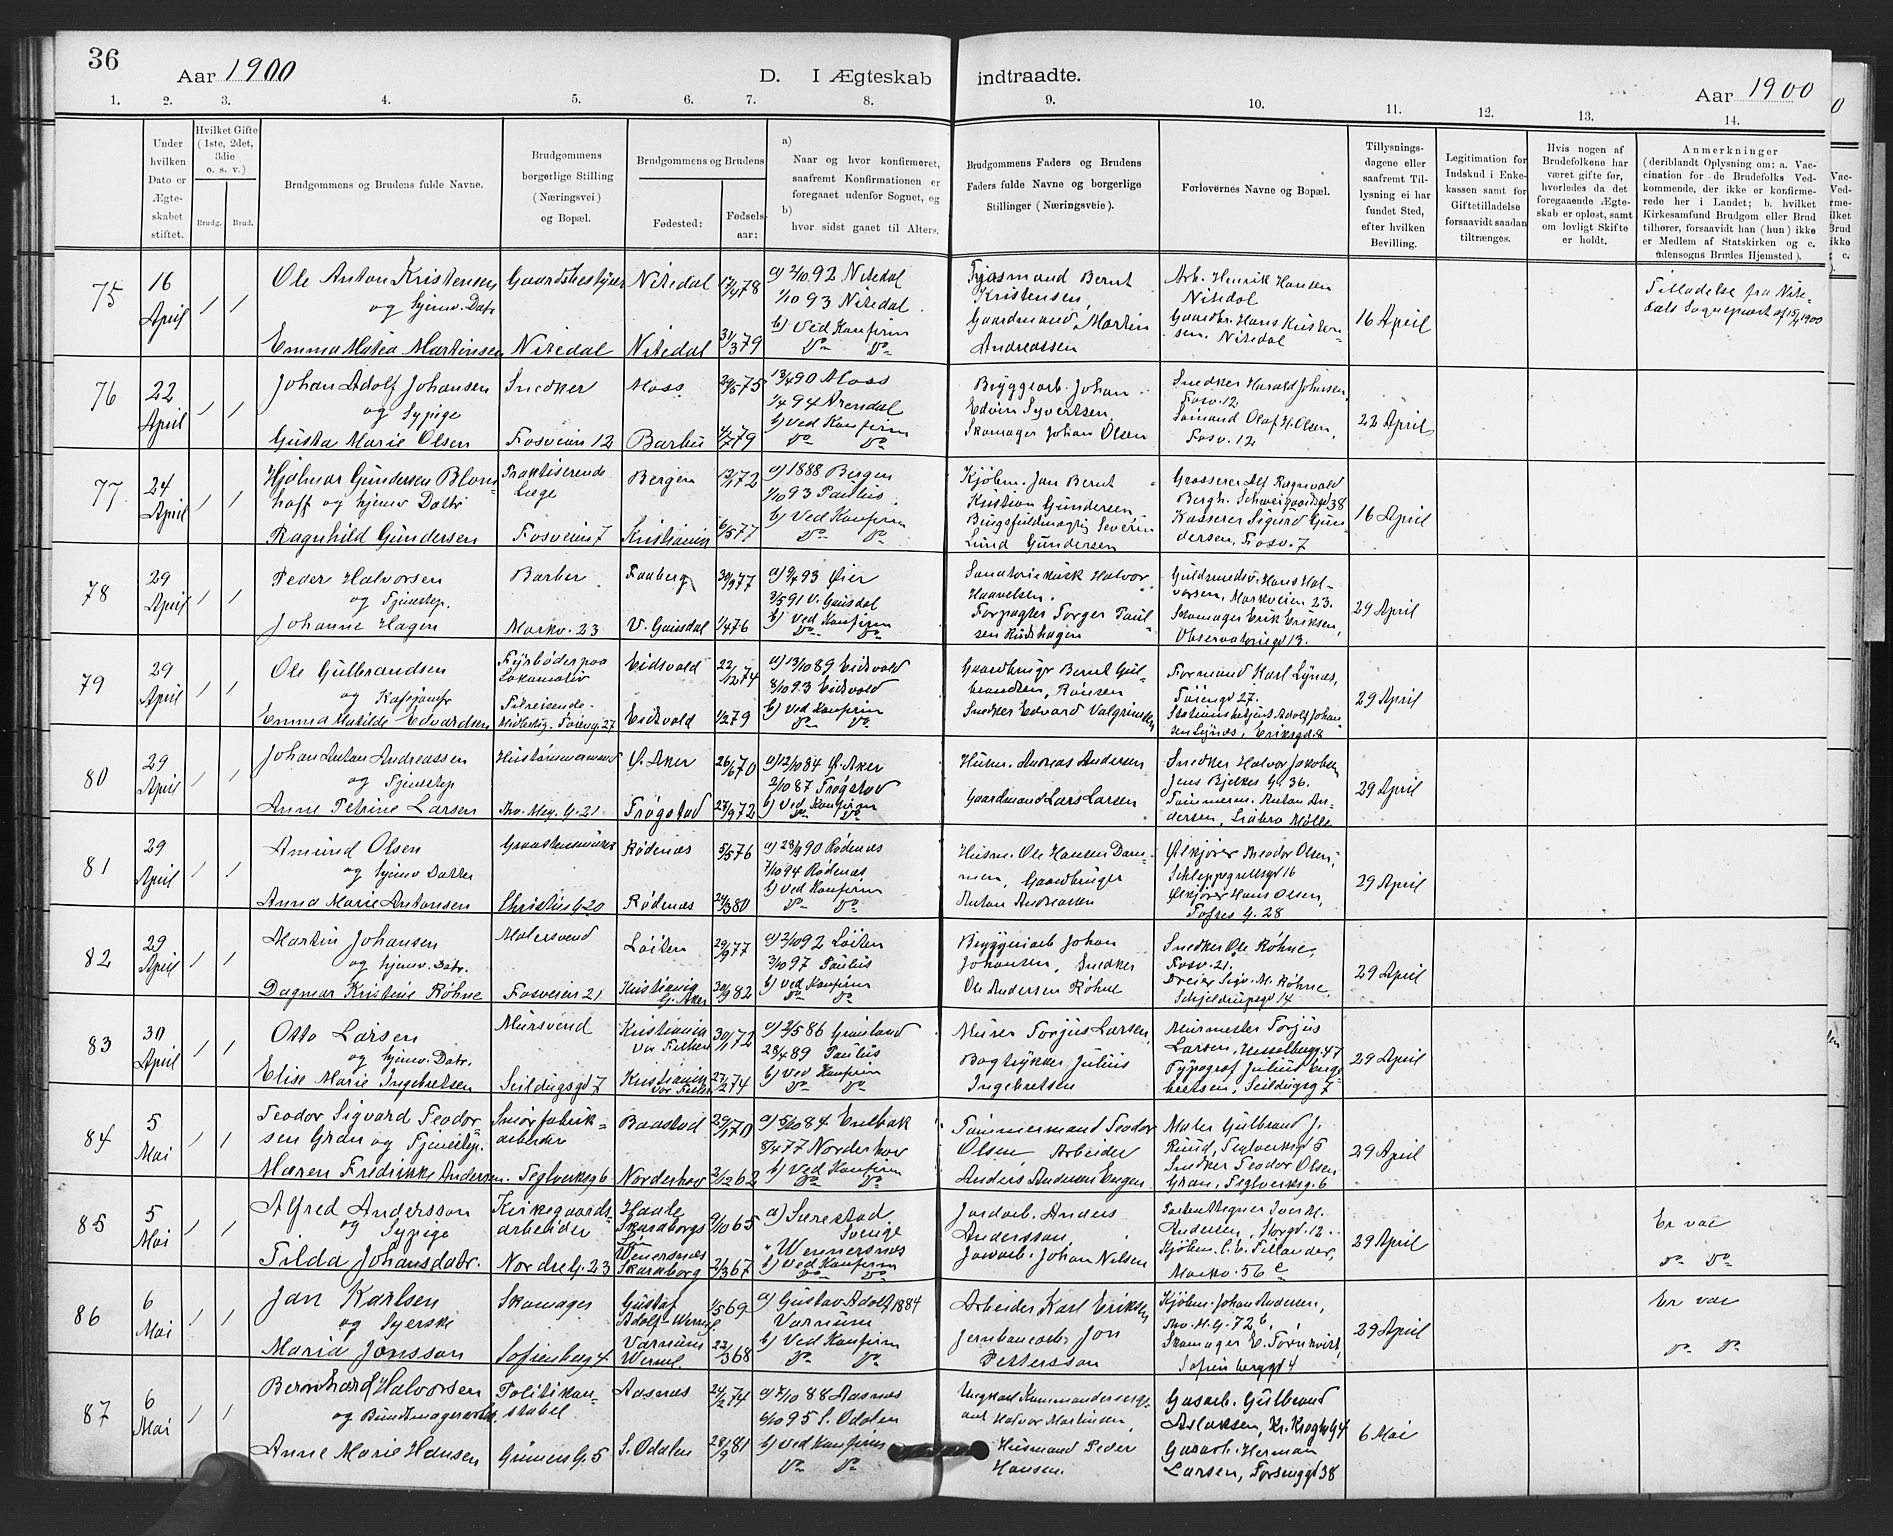 36
Aar 1900
D. I Ægteskab indtraadte.
Aar 1900
1. 2. 3. 4. 5. 6. 7. 8. 9. 10. 11. 12. 13. 14.
Under hvilken Dato er Ægteskabet stiftet.
Hvilket Gifte (1ste, 2det, 3die o. s. v.)
Brudg. Brud.
Brudgommens og Brudens fulde Navne.
Brudgommens borgerlige Stilling (Næringsvei) og Bopæl.
Brudgommens og Brudens
Fødested: Fødselsaar:
a) Naar og hvor konfirmeret, saafremt Konfirmationen er foregaaet udenfor Sognet, og
b) hvor sidst gaaet til Alters.
Brudgommens Faders og Brudens Faders fulde Navne og borgerlige Stillinger (Næringsveie).
Forlovernes Navne og Bopæl.
Tillysningsdagene eller saafremt Tillysning ei har fundet Sted, efter hvilken Bevilling.
Legitimation for Indskud i Enkekassen samt for Giftetilladelse forsaavidt saadan tiltrænges.
Hvis nogen af Brudefolkene har været gifte før, hvorledes da det foregaaende Ægteskab er opløst, samt om lovligt Skifte er holdt.
Anmerkninger (deriblandt Oplysning om: a. Vaccination for de Brudefolks Vedkommende, der ikke er konfirmerede her i Landet; b. hvilket Kirkesamfund Brudgom eller Brud tilhører, forsaavidt han (hun) ikke er Medlem af Statskirken og c. udensogns Brudes Hjemsted).
75
16 April
1 1
Ole Anton Kristensen
og hjemv. Datr
Emma Maria Martinsen
Gaardsbestyrer
Nitedal
Nitedal 17/4 78
Nitedal 31/3 79
a) 2/10 92 Nitedal
1/10 93 Nitedal
b) Ved Konfirm
Do Do
Bernt
Kristensen
Gaardmand Martin
Andreassen
Arb. Henrik Hansen
Nitedal
Gaardbr. Hans Kristensen. Nitedal
16 April
Tilladelse fra Nitedals Sognepræst af 15/4 1900
76
22 April
1 1
Johan Adolf Johansen
og Sypige
Gusta Marie Olsen
Snedker
Fosveien 12
Moss 29/5 75
Barbu 4/7 79
13/4 90 Moss
1/4 94 Arendal
b) Ved Konfirm
Do Do
Bryggearb. Johan
Edvin Syvertsen
Skomager Johan Olsen
Snedker Harald Johnsen,
Fosv. 12
Sømand Olaf H. Olsen,
Fosv. 12
22 April
77
24 April
1 1
Hjalmar Gundersen
og hjemv Dattr
Ragnhild Gundersen
Praktiserende
Læge
Fosveien 7
Bergen 12/1 72
Kristiania 6/5 77
a) 1888 Bergen
1/10 93 Paulus
b) Ved Konfirm
Do Do
Kjøbm. Jan Bernt
Kristian Gundersen
Severin
Lund Gundersen
Grosserer Alf Ragnvald
Bergh. Schweigaardsgd 38
Kasserer Sigurd Gundersen, Fosv. 7
16 April
78
29 April
1 1
Peder Halvorsen
og Tjenestep.
Johanne Hagen
Barber
Markv. 23
Faaberg 30/9 77
V. Gausdal 1/4 76
a) 9/4 93 Øier
3/5 91 V. Gausdal
b) Ved Konfirm
Do Do
Halvor
Haavelsen.
Forpagter Torger Paulsen
Guldsmedsv. Hans Halvorsen, Markveien 23.
Skomager Erik Eriksen,
Observatoriegd 13.
29 April
79
29 April
1 1
Ole Gulbrandsen
og
Emma Matilde Edvardsen
Fyrbøder paa
Lokomotiv
Tøiengd. 27
Eidsvold 22/12 74
Eidsvold 1/2 79
a) 13/10 89 Eidsvold
8/10 93 Eidsvold
b) Ved Konfirm
Do Do
Gaardbruger Bernt Gulbrandsen,
Snedker Edvard
Formand Karl Lynæs,
Tøiengd 27.
Adolf Johansen Lynæs, Eriksgd. 8
29 April
80
29 April
1 1
Johan Anton Andreassen
og Tjenestep
Anne Petrine Larsen
Trv. Mey. G. 21
Ø. Aker 26/6 70
Trøgstad 27/9 72
a) 12/10 84 Ø. Aker
2/10 87 Trøgstad
b) Ved Konfirm
Do Do
Husm. Andreas Andersen
Gaardmand Lars Larsen
Snedker Halvor Jakobsen
Jens Bjelkes G. 36.
Tømmerm. Anton Andersen, Ljabro Mølle
29 April
81
29 April
1 1
Amund Olsen
og hjemv Datter
Anna Marie Antonsen
Christies G. 20
Rødenæs 5/5 76
Rødenæs 24/3 80
a) 28/9 90 Rødenæs
7/10 94 Rødenæs
b) Ved Konfirm
Do Do
Husm. Ole Hansen
Gaardbruger
Anton Andreasen
Ølkjører Theodor Olsen,
Schleppegrellsgd 16
Ølkjører Hans Olsen,
Toftes G. 28
29 April
82
29 April
1 1
Martin Johansen
og hjemv. Datr.
Dagmar Kristine Røhne
Malersvend
Fosveien 21
Løiten 29/9 77
Kristiania
G. Aker 30/9 82
a) 2/10 92 Løiten
3/10 97 Paulus
b) Ved Konfirm
Do Do
Bryggeriarb Johan
Johansen, Snedker
Ole Andersen Røhne
Snedker Ole Røhne,
Fosv. 21.
Dreier Sigv. M. Røhne,
Schjeldrupsgd 14
29 April
83
30 April
1 1
Otto Larsen
og hjemv. Datr.
Elise Marie Ingebretsen
Mursvend
Seildugsgd 7
Kristiania
Vor Frelser 30/1 72
Kristiania
Vor Frelser 27/12 74
a) 2/5 86 Grønland
28/4 89 Paulus
b) Ved Konfirm
Do Do
Murer Torjus Larsen,
Bogtrykker Julius
Ingebretsen
Murmester Torjus
Larsen, Hesselbergs. 47
Typograf Julius Ingebretsen, Seildugsg 7
29 April
84
5 Mai
1 1
Teodor Sigvard Teodorsen Gran og Tjenestep.
Maren Fredrikke Andersen
Smørfabrikarbeider
Teglverksg 6
Baastad 29/1 70
Norderhov 2/12 62
a) 5/10 84 Enebak
8/4 77 Norderhov
b) Ved Konfirm
Do Do
Tømmermand Teodor
Olsen Arbeider
Anders Andersen Engen
Maler Gulbrand J.
Ruud, Teglverksgd 5
Snedker Teodor Olsen
Gran, Teglverksg. 6
29 April
85
5 Mai
1 1
Alfred Andersson
og Sypige
Tilda Johansdatr.
Kirkegaardsarbeider
Nordre G. 23
Skaraborgs
Län 9/10 65
Skaraborg 2/3 67
a) Særestad
Sverige
" Wennersnæs
b) Ved Konfirm
Do Do
Jordarb. Anders
Andersson,
Jordarb. Johan Nilsen
Andersen, Storgd. 12.
Kjøbm. C. E. Tillander,
Markv. 56 c
29 April
Er vac
Do Do
86
6 Mai
1 1
Jan Karlsen
og Syerske
Maria Jonsson
Skomager
Sofienberg 4
Gustaf
Adolf 1/5 69
Varnum
Werml. 22/3 68
a) Gustav Adolf 1884
Varnum
b) Ved Konfirm
Do Do
Arbeider Karl Eriksen
Jernbanearb. Jon
Pettersson
Kjøbm. Johan Andersen,
Trv. M. G. 72 b,
Skomager E. Törnkvist,
Sofienberggd 4
29 April
Er vac
Do Do
87
6 Mai
1 1
Bernhard Halvorsen
og Bundtmagerarb.
Anne Marie Hansen
Politikonstabel
Grüners G. 5
Aasnæs 24/2 74
S. Odalen 28/9 81
a) 7/10 88 Aasnæs
6/10 95 S. Odalen
b) Ved Konfirm
Do Do
Halvor Martinsen,
Husmand Peder
Hansen.
Gasarb. Gulbrand
Aslaksen, Kr. Kroghs G 4
Gasarb. Herman
Larsen, Forsenggd 38
6 Mai